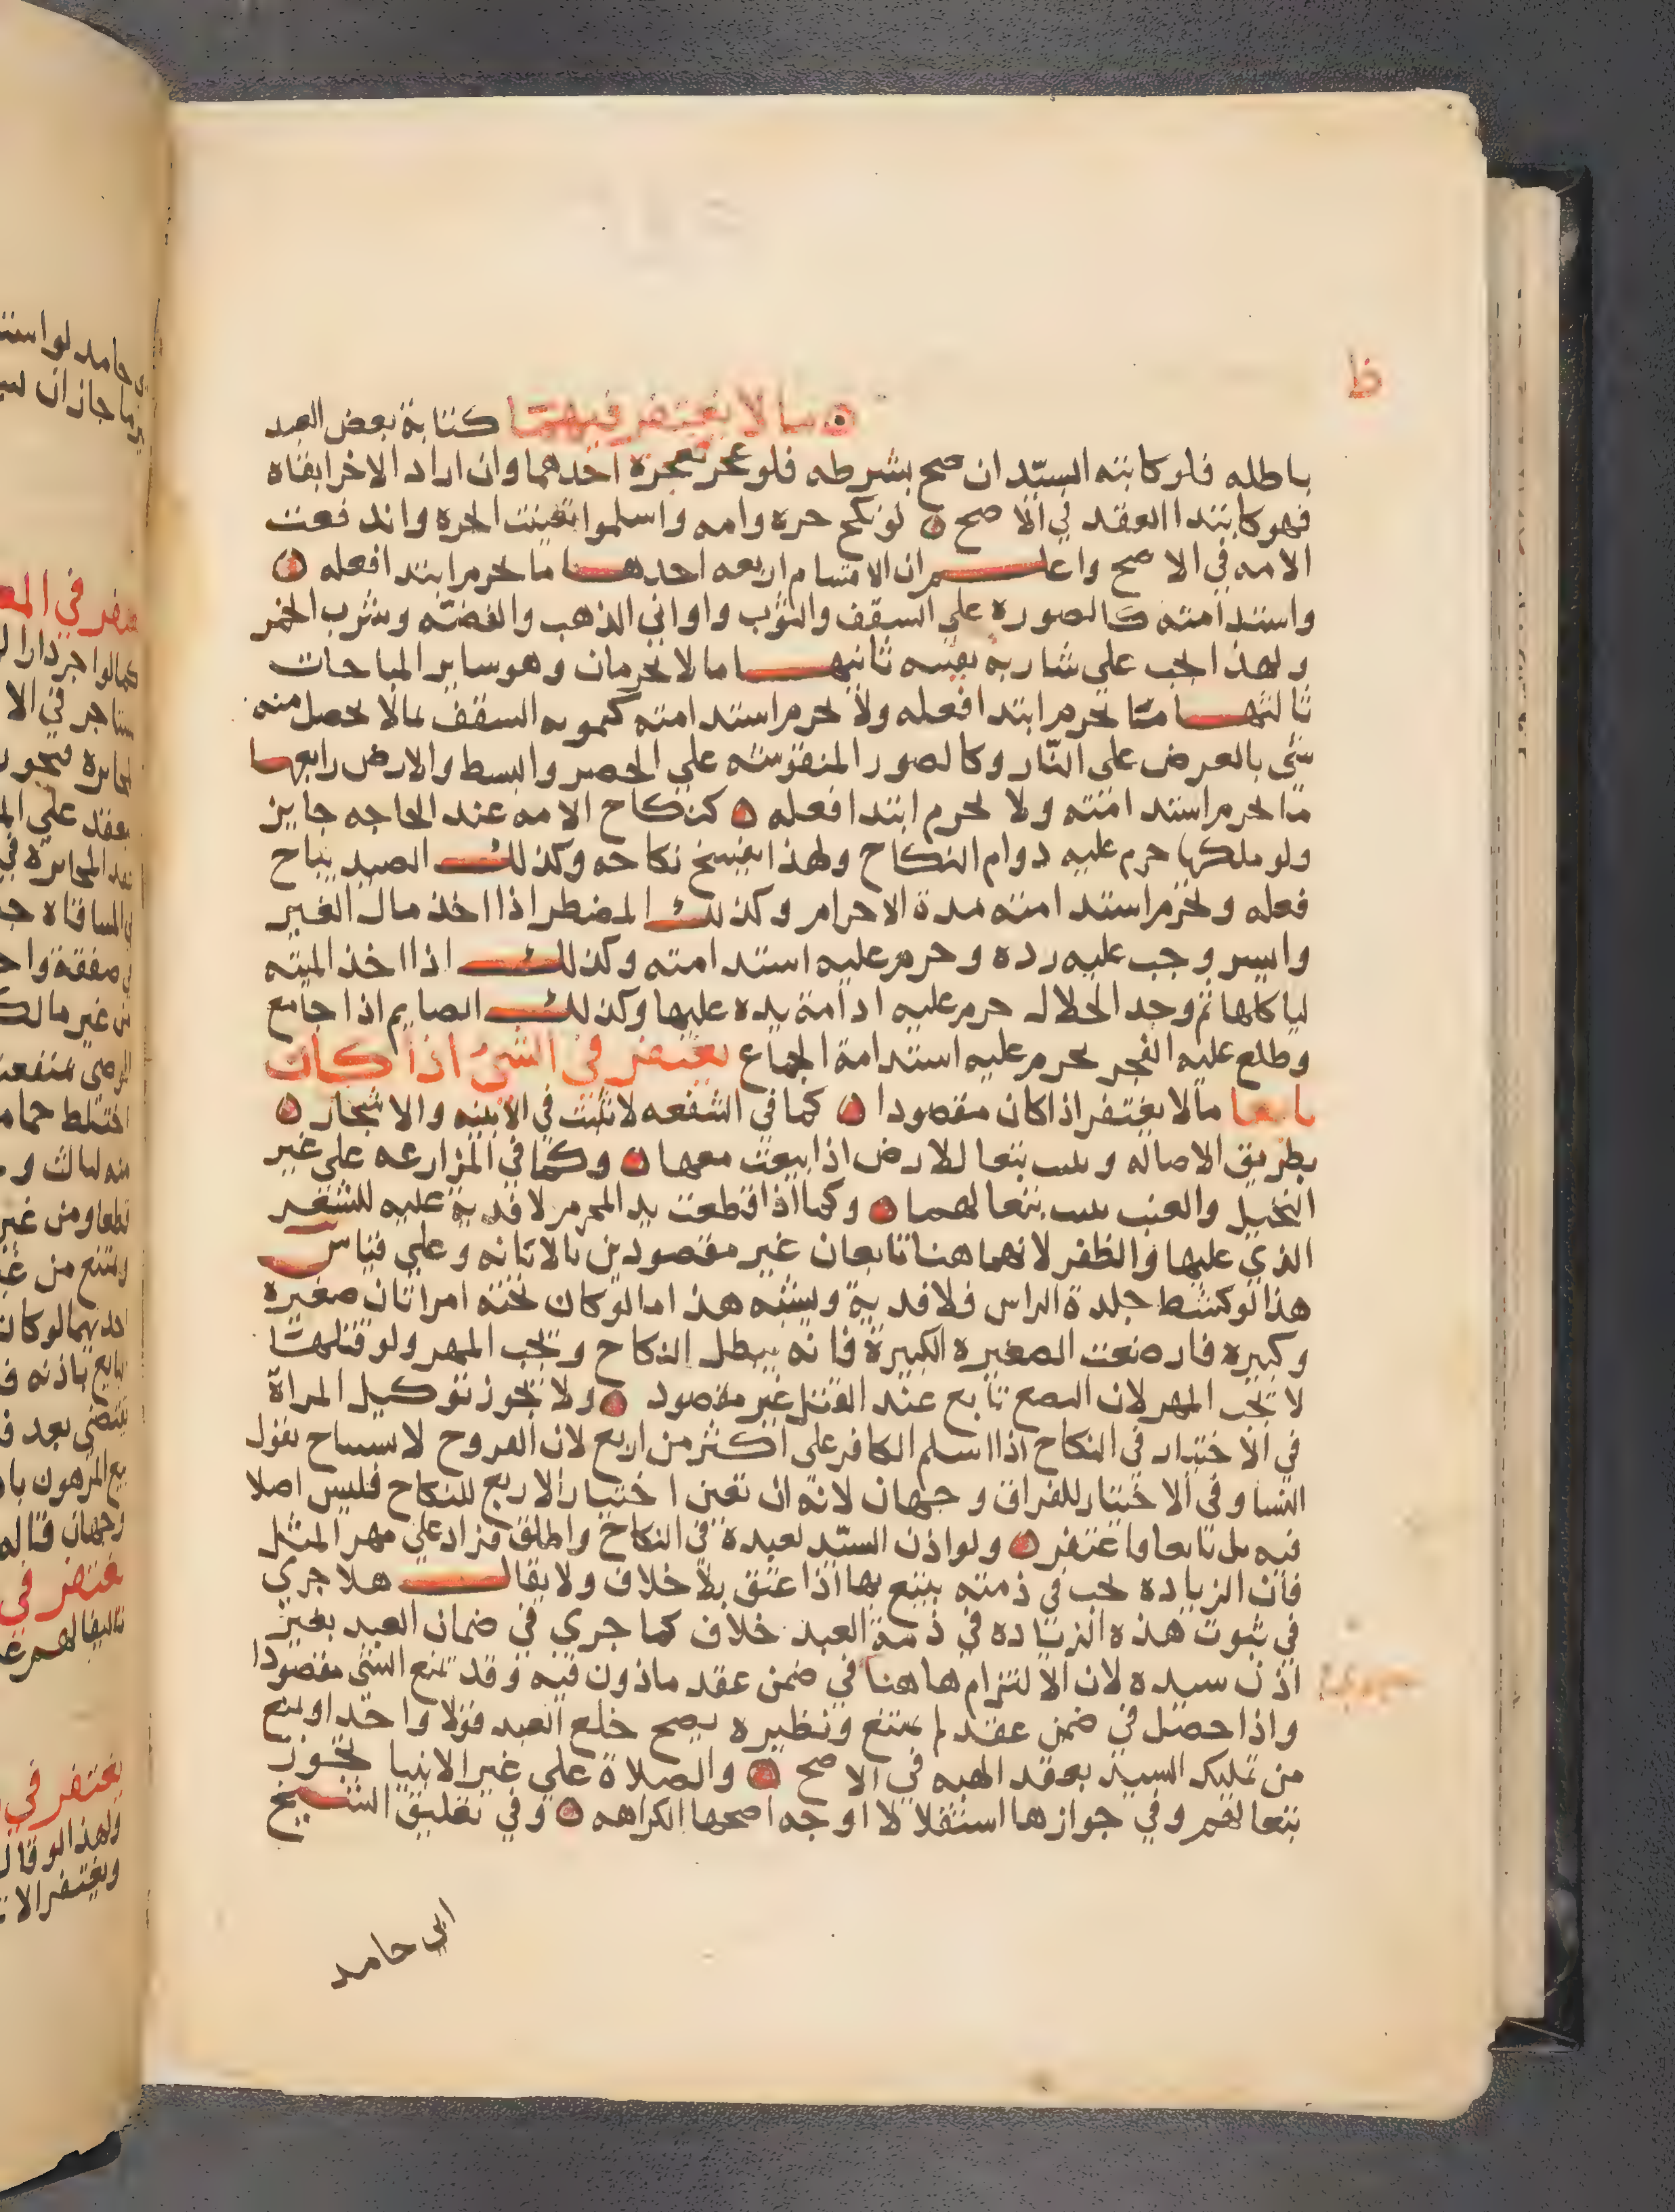 ظ
ما لا يغتفر فيهما كتابة بعض العبد
باطله فلو كاتبه السيّدان صح بشرطه فلو عجز فعجزه احدهما وان اراد الاخر ابقاه
فهو كابتدا العقد في الاصح لو نكح حره وامه واسلموا تعينت الحره واندفعت
الامه في الاصح واعلم ان الاقسام اربعه احدها ما يحرم ابتدا فعله
واستدامته كالصوره علي السقف والثوب واواني الذهب والفضّه وشرب الخمر
ولهذا يجب علي شاربه تقيّيه ثانيها ما لا يحرمان وهو ساير المباحات
ثالثها ما يحرم ابتدا فعله ولا يحرم استدامته كتمويه السقف بما لا يحصل منه
شي بالعرض على النّار وكالصور المنقوشه علي الحصر والبسط والارض رابعها
ما يحرم استدامته ولا يحرم ابتدا فعله كنكاح الامه عند الحاجه جايز
ولو ملكها حرم عليه دوام النكاح ولهذا ينفسخ نكاحه وكذلك الصيد يباح
فعله ويحرم استدامته مدة الاحرام وكذلك المضطر اذا اخذ مال الغير
وايسر وجب عليه رده وحرم عليه استدامته وكذلك اذا اخذ الميته
لياكلها ثم وجد الحلال حرم عليه ادامة يده عليها وكذلك الصايم اذا جامع
وطلع عليه الفجر يحرم عليه استدامة الجماع يغتفر في الشيء اذا كان
تابعا ما لا يغتفر اذا كان مقصودا كما في الشفعه لا تثبت في الابنيه والاشجار
بطريق الاصاله وتثبت تبعا للارض اذا بيعت معها وكما في المزارعه على غير
النخيل والعنب تثبت تبعا لهما وكما اذا قطعت يد المحرم لا فدية عليه للشعر
الذي عليها والظفر لانهما هنا تابعان غير مقصودين بالابانه وعلي قياس
هذا لو كشط جلدة الراس فلا فدية ويشبه هذا ما لو كان تحته امراتان صغيره
وكبيره فارضعت الصغيره الكبيرة فانه يبطل النكاح ويجب المهر ولو قتلها
لا يجب المهر لان البضع تابع عند القتل غير مقصود ولا يجوز توكيل المراة
في الاختيار في النكاح اذا اسلم الكافر على اكثر من اربع لان الفروج لا تستباح بقول
النسا وفي الاختيار للفراق وجهان لانه ان تعين اختيار الاربع للنكاح فليس اصلا
فيه بل تابعا فاغتفر ولو اذن السيّد لعبده في النكاح واطلق فزاد علي مهر المثل
فان الزياده تجب في ذمته يتبع بها اذا عتق بلا خلاف ولا يقال هلا جري
في ثبوت هذه الزياده في ذمة العبد خلاف كما جري في ضمان العبد بغير
اذن سيده لان الالتزام هاهنا في ضمن عقد ماذون فيه وقد يمنع الشي مقصودا
واذا حصل في ضمن عقد لم يمتنع ونظيره يصح خلع العبد قولا واحدا ويمنع
من تمليك السيد بعقد الهبه في الاصح والصلاة علي غير الانبيا تجوز
تبعا لهم وفي جوازها استقلالا اوجه اصحها الكراهه وفي تعليق الشيخ
ابي حامد